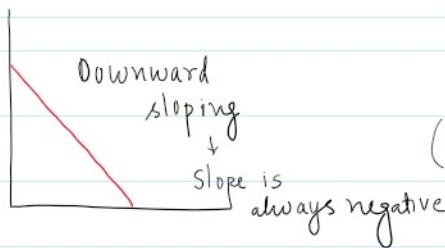 Downward
sloping
↓
Slope is
always negative
(